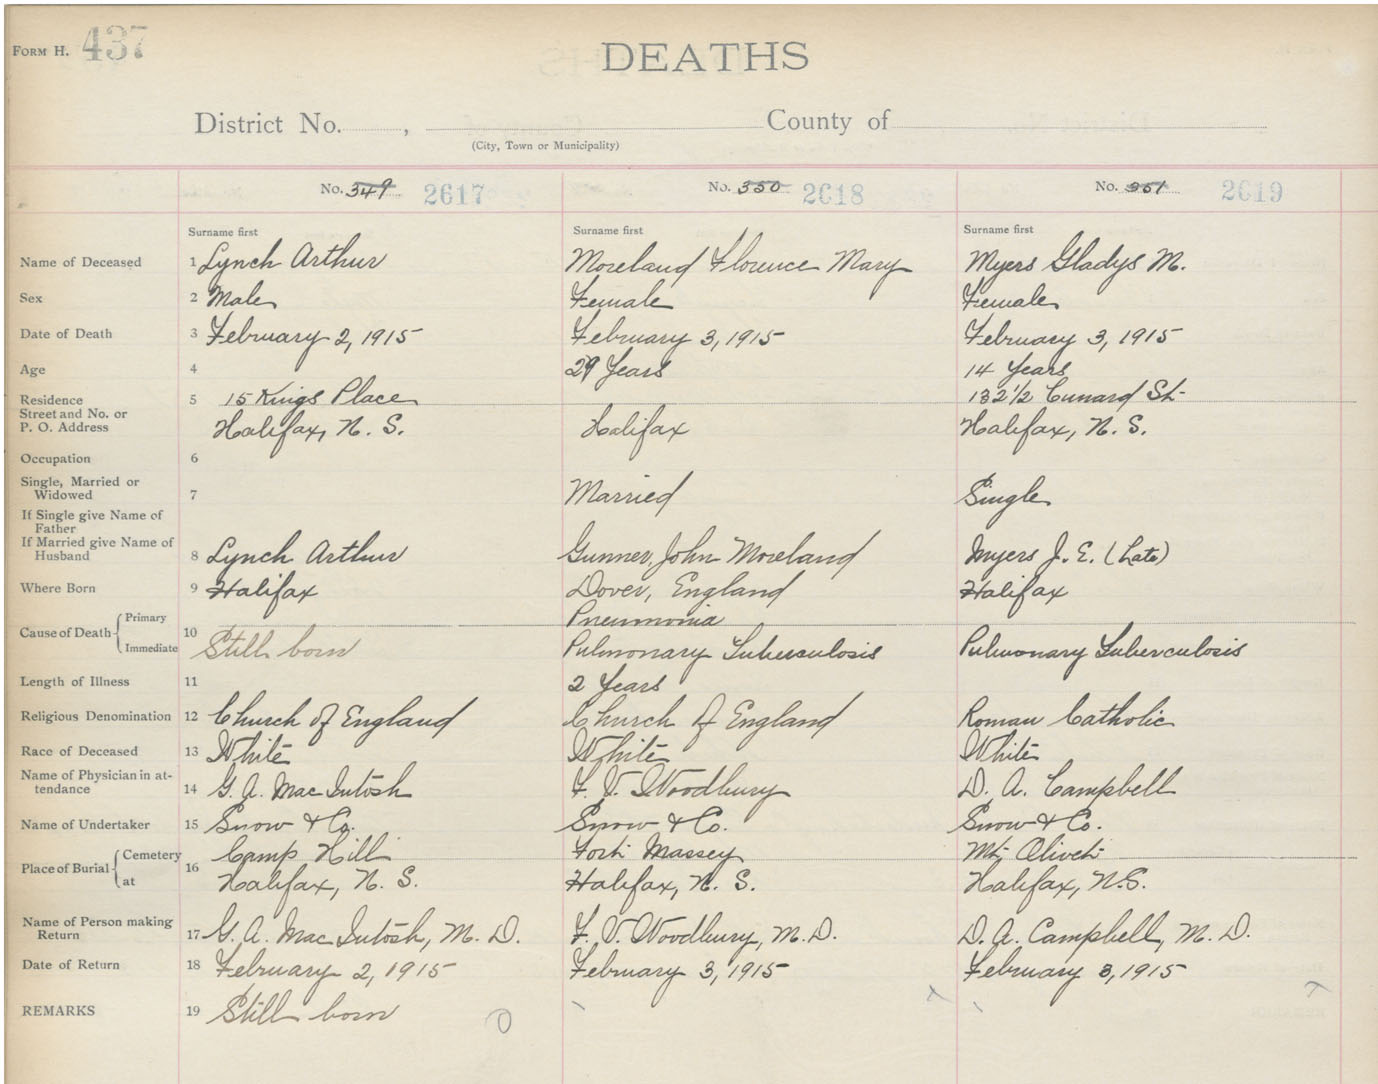 FORM H. 437
DEATHS
District No. , County of
(City, Town or Municipality)
No. 349 2617 No. 350 2618 No. 351 2619
Surname first Surname first Surname first
Name of Deceased 1 Lynch Arthur Moreland Florence Mary Myers Gladys M.
Sex 2 Male Female Female
Date of Death 3 February 2, 1915 February 3, 1915 February 3, 1915
Age 4 29 Years 14 Years
Residence 5 15 Kings Place 132 1/2 Cunard St.
Street and No. or
P. O. Address Halifax, N. S. Halifax Halifax, N. S.
Occupation 6
Single, Married or
Widowed 7 Married Single
If Single give Name of
Father
If Married give Name of
Husband 8 Lynch Arthur Gunner, John Moreland Myers J. E. (Late)
Where Born 9 Halifax Dover, England Halifax
Primary Pneumonia
Cause of Death 10
Immediate Still born Pulmonary Tuberculosis Pulmonary Tuberculosis
Length of Illness 11 2 Years
Religious Denomination 12 Church of England Church of England Roman Catholic
Race of Deceased 13 White White White
Name of Physician in at-
tendance 14 G. A. MacIntosh F. V. Woodbury D. A. Campbell
Name of Undertaker 15 Snow & Co. Snow & Co. Snow & Co.
Cemetery Camp Hill Fort Massey Mt, Olivet
Place of Burial 16
at Halifax, N. S. Halifax, N. S. Halifax, N.S.
Name of Person making
Return 17 G. A. MacIntosh, M. D. F. V. Woodbury, M.D. D. A. Campbell, M. D.
Date of Return 18 February 2, 1915 February 3, 1915 February 3, 1915
REMARKS 19 Still born